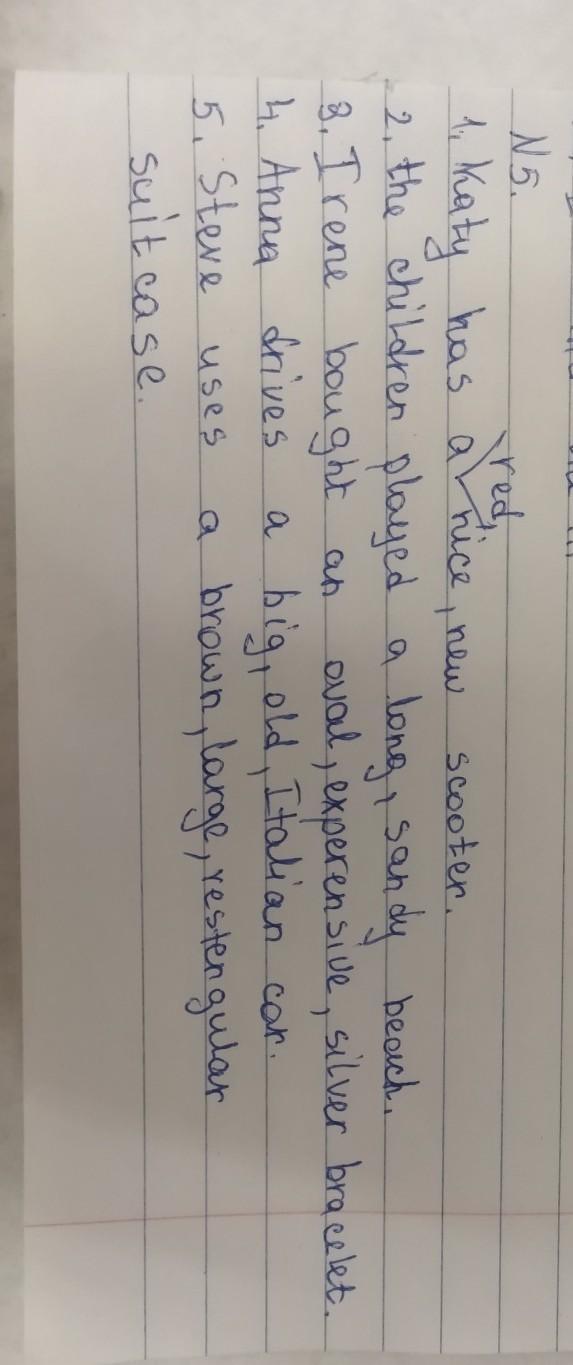 N 5.
1. Katy has a red, nice, new scooter.
2. the children played a long, sandy beach.
3. Irene bought an oval, experensive, silver bracelet.
4. Anna drives a big, old, Italian car.
5. Steve uses a brown, large, restengular
suitcase.